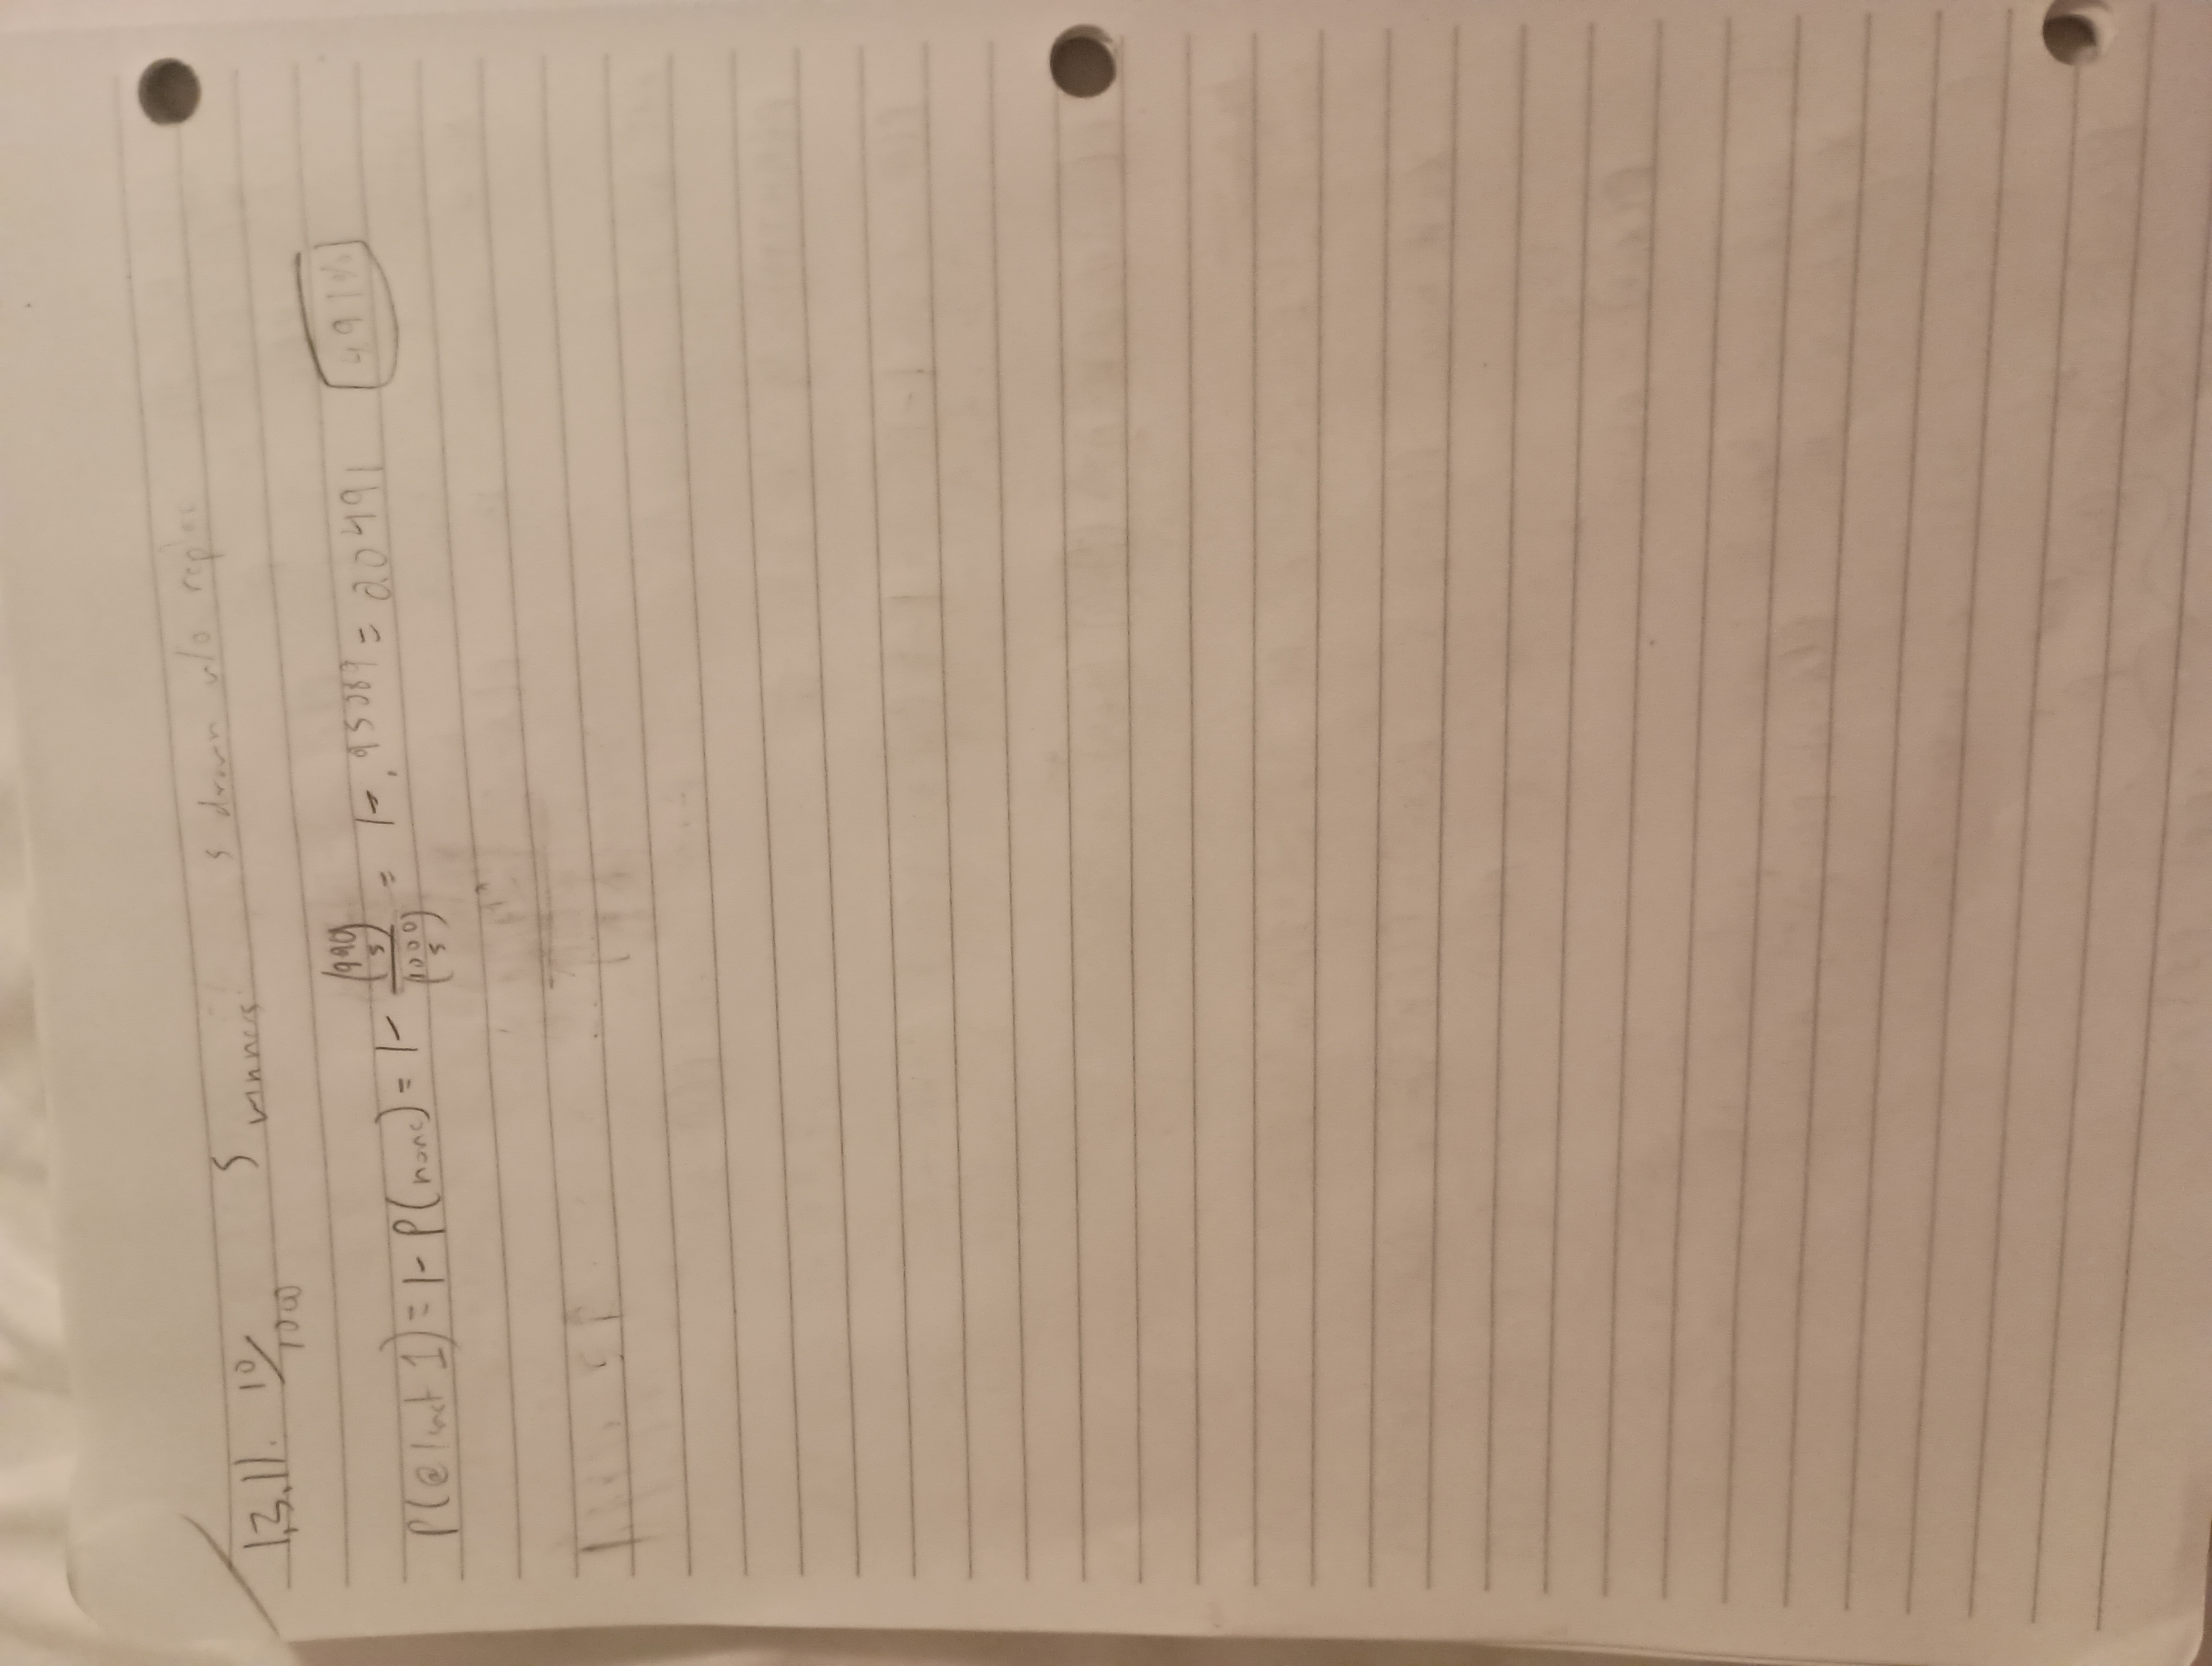 1.3.11. 10/1000 5 winners 5 drawn w/o replac
P(@ least 1) = 1 - P(none) = 1 - (990 5)/(1000 5) = 1 - .95089 = 0.0491 4.91%